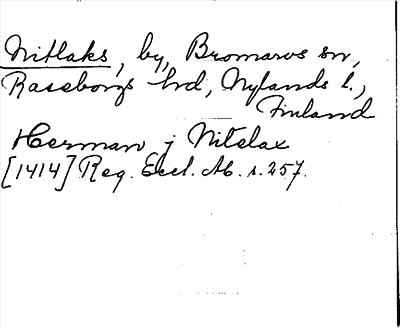 Nitlaks, by, Bromarvs sn,
Raseborgs hd, Nylands l.,
Finland
Herman j Nitelax
[1414] Reg. Eccl. Ab. s. 257.